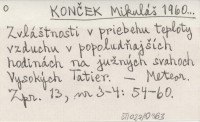 KONČEK Mikuláš 1960...
Zvláštnosti v priebehu teploty
vzduchu v popoludňajších
hodinách na južných svahoch
Vysokých Tatier. — Meteor.
Zpr. 13, nr 3-4: 54-60.